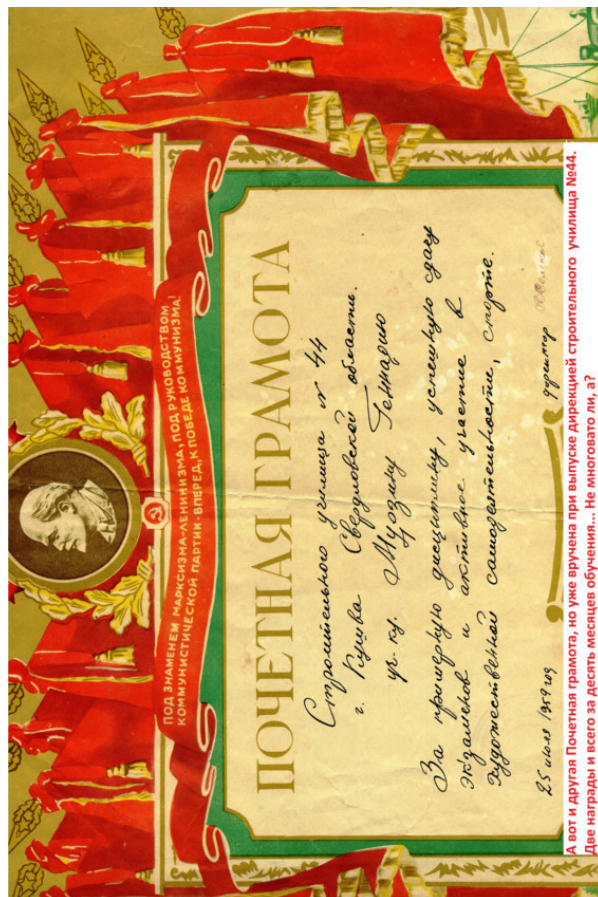 ПОД ЗНАМЕНЕМ МАРКСИЗМА-ЛЕНИНИЗМА, ПОД РУКОВОДСТВОМ
КОММУНИСТИЧЕСКОЙ ПАРТИИ - ВПЕРЕД, К ПОБЕДЕ КОММУНИЗМА!
ПОЧЕТНАЯ ГРАМОТА
Строительного училища № 44
г. Кушва Свердловской области.
уч-ку. Геннадию
За примерную дисциплину, успешную сдачу
экзаменов и активное участие в
художественной самодеятельности, спорте.
25 июля 1959 год директор
А вот и другая Почетная грамота, но уже вручена при выпуске дирекцией строительного училища №44.
Две награды и всего за десять месяцев обучения... Не многовато ли, а?